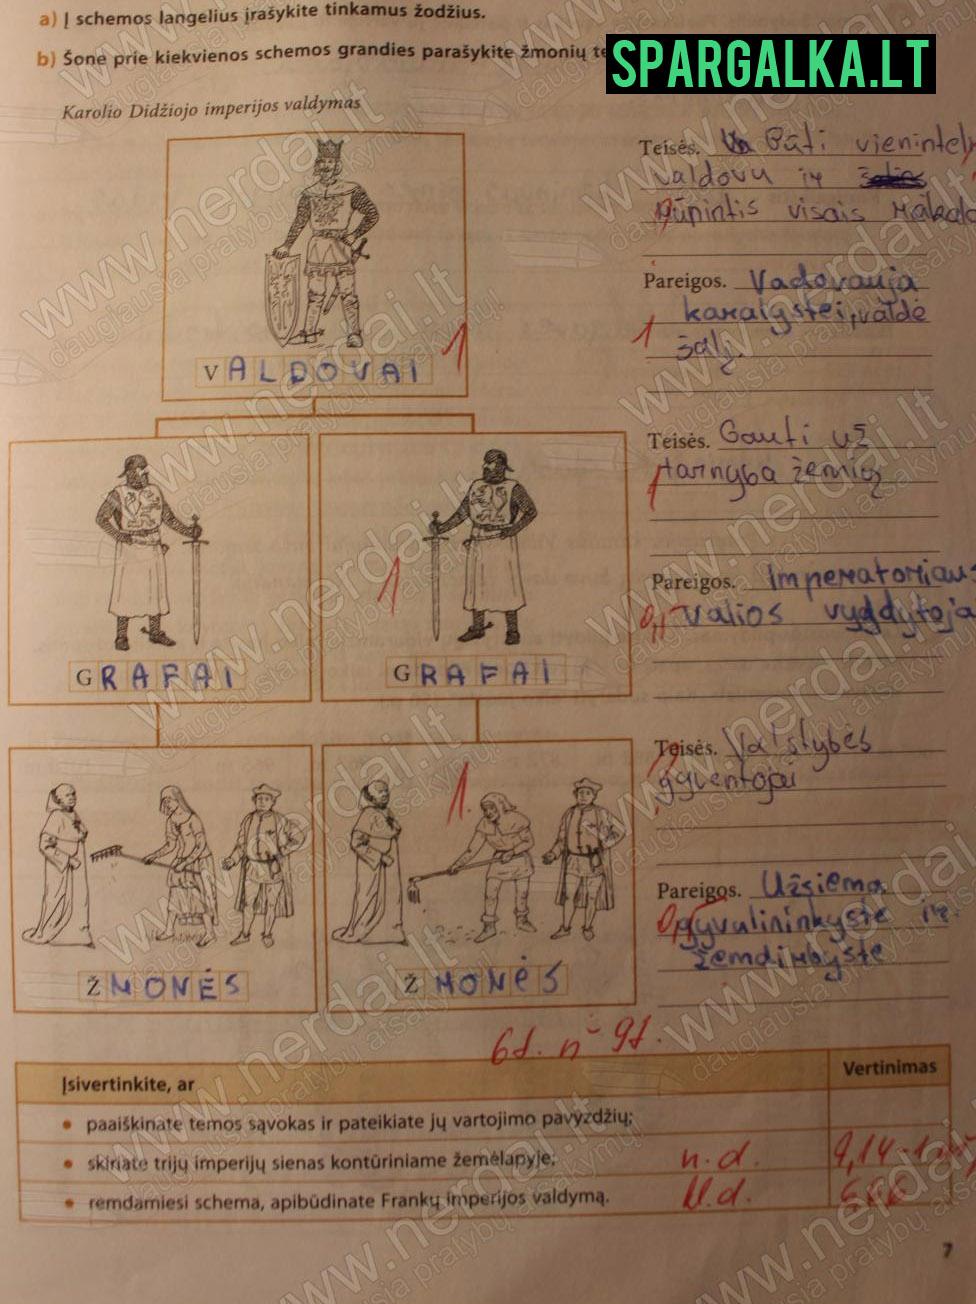 a) Į schemos langelius įrašykite tinkamus žodžius.
b) Šone prie kiekvienos schemos grandies parašykite žmonių te
SPARGALKA.LT
Karolio Didžiojo imperijos valdymas
Teisės. Būti vienintel
valdovu ir
rūpintis visais
Pareigos. Vadovauja
karalystei, valdė
šalį.
1
1
VALDOVAI
Teisės. Gauti už
tarnyba žemių
1
Pareigos. Imperatoriaus
valios vygdytoja
GRAFAI
GRAFAI
Teisės. Valstybės
gyventojai
1.
Pareigos. Užsiema
gyvulininkyste ir
žemdirbyste
ŽMONĖS
ŽMONĖS
6t. iš 9t.
Įsivertinkite, ar
Vertinimas
• paaiškinate temos sąvokas ir pateikiate jų vartojimo pavyzdžių;
• skiriate trijų imperijų sienas kontūriniame žemėlapyje; n.d.
• remdamiesi schema, apibūdinate Frankų imperijos valdymą.
7
www.nerdai.lt
daugiausia pratybų atsakymų!